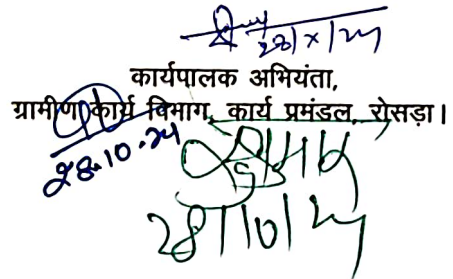 28/x/24
कार्यपालक अभियंता,
ग्रामीण कार्य विभाग, कार्य प्रमंडल, रोसड़ा।
28.10.24
28/10/24